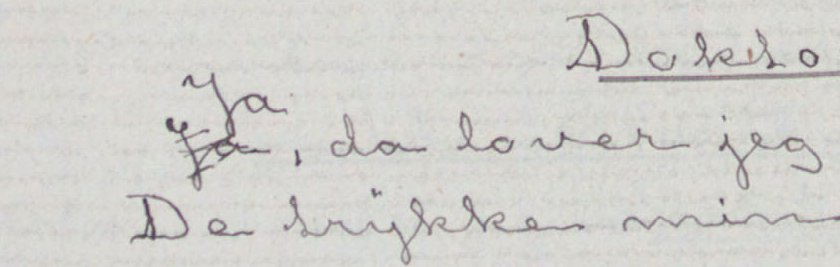 Dokto
Ja
Ja, da lover jeg
De trÿkker min